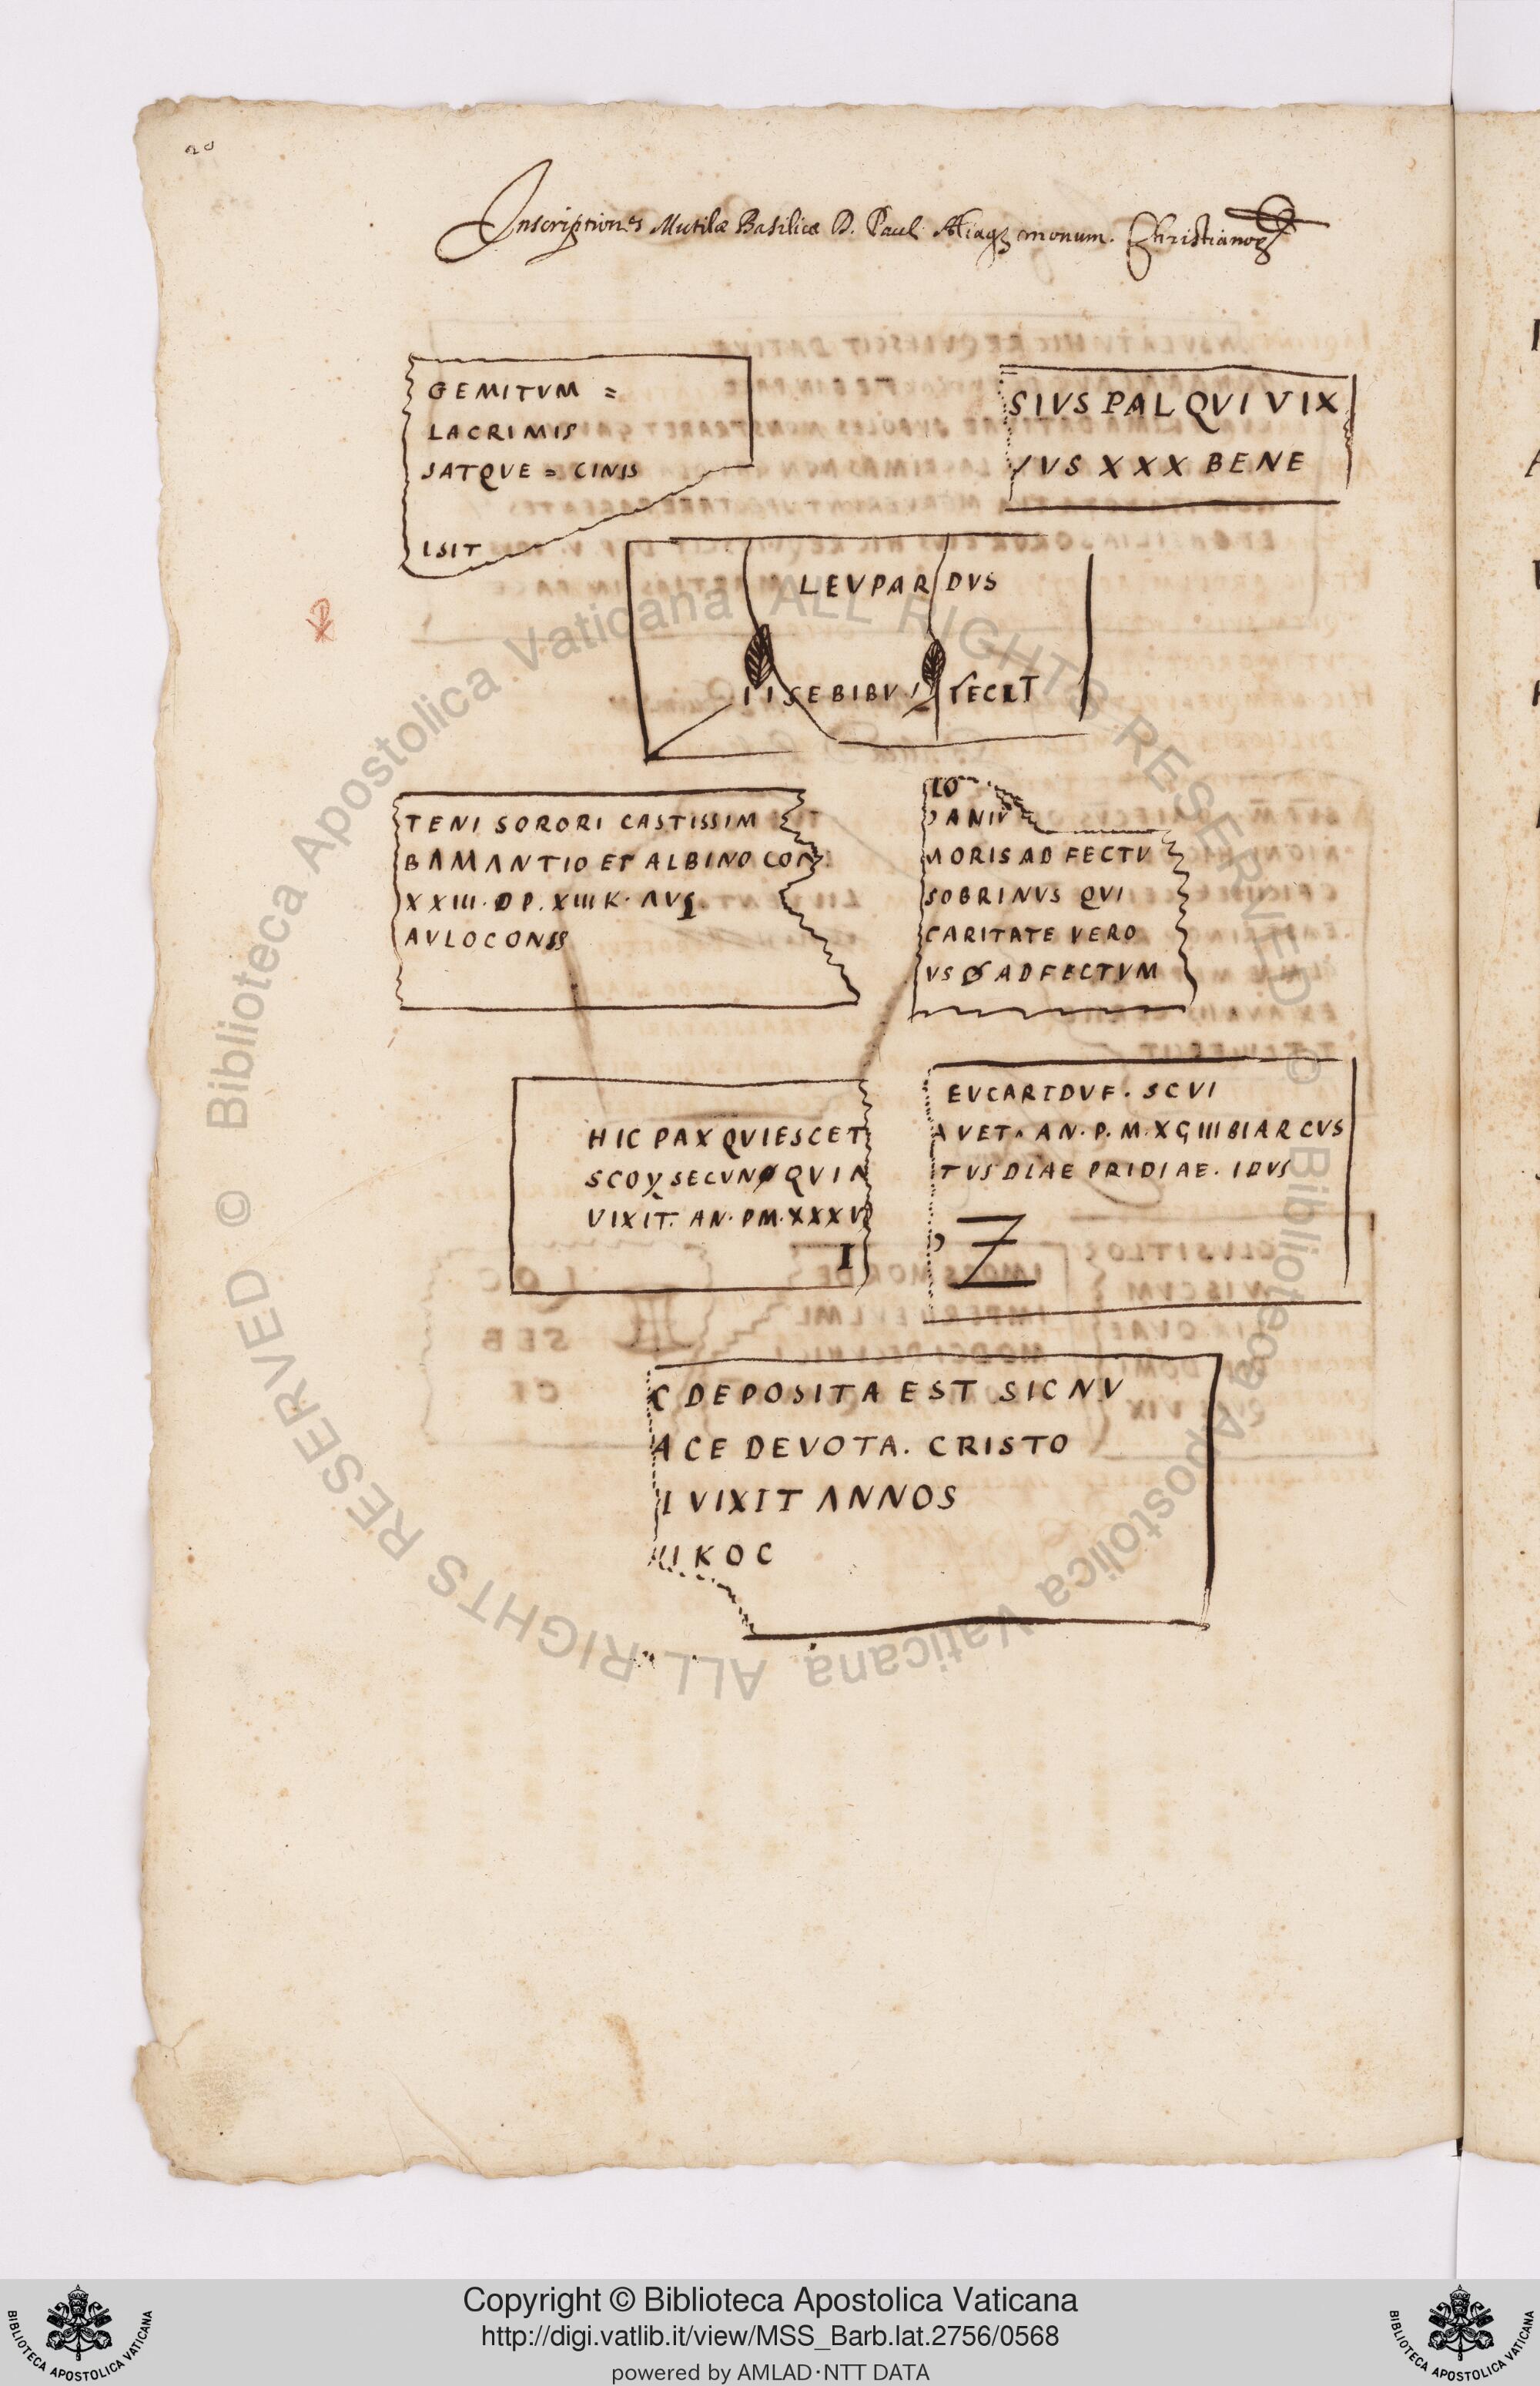 20
Inscriptiones Mutilæ Basilicæ D. Pauli monum. Christianoꝝ
GEMITVM =
LACRIMIS
SATQVE = CINIS
ISIT
SIVS PAL QVI VIX
VS XXX BENE
LEVPARDVS
IISEBIBV FECIT
TENI SORORI CASTISSIM
BAMANTIO ET ALBINO CON
XXIII · DP. XIII K · AVG
AVLOCONSS
IO
ANIV
MORIS AD FECTV
SOBRINVS QVI
CARITATE VERO
VS ADFECTVM
HIC PAX QVIESCET
SECVNØ QVIN
VIXIT. AN · PM · XXXV
I
EVCARIDVF · SCVI
AVET · AN · P · M · XGIIIBIARCVS
TVS DIAE PRIDIAE · IDVS
Z
C DEPOSITA EST SIC NV
ACE DEVOTA . CRISTO
I VIXIT ANNOS
I K O C
© Biblioteca Apostolica Vaticana ALL RIGHTS RESERVED © Biblioteca Apostolica Vaticana ALL RIGHTS RESERVED
Copyright © Biblioteca Apostolica Vaticana
http://digi.vatlib.it/view/MSS_Barb.lat.2756/0568
powered by AMLAD·NTT DATA
BIBLIOTECA APOSTOLICA VATICANA
BIBLIOTECA APOSTOLICA VATICANA